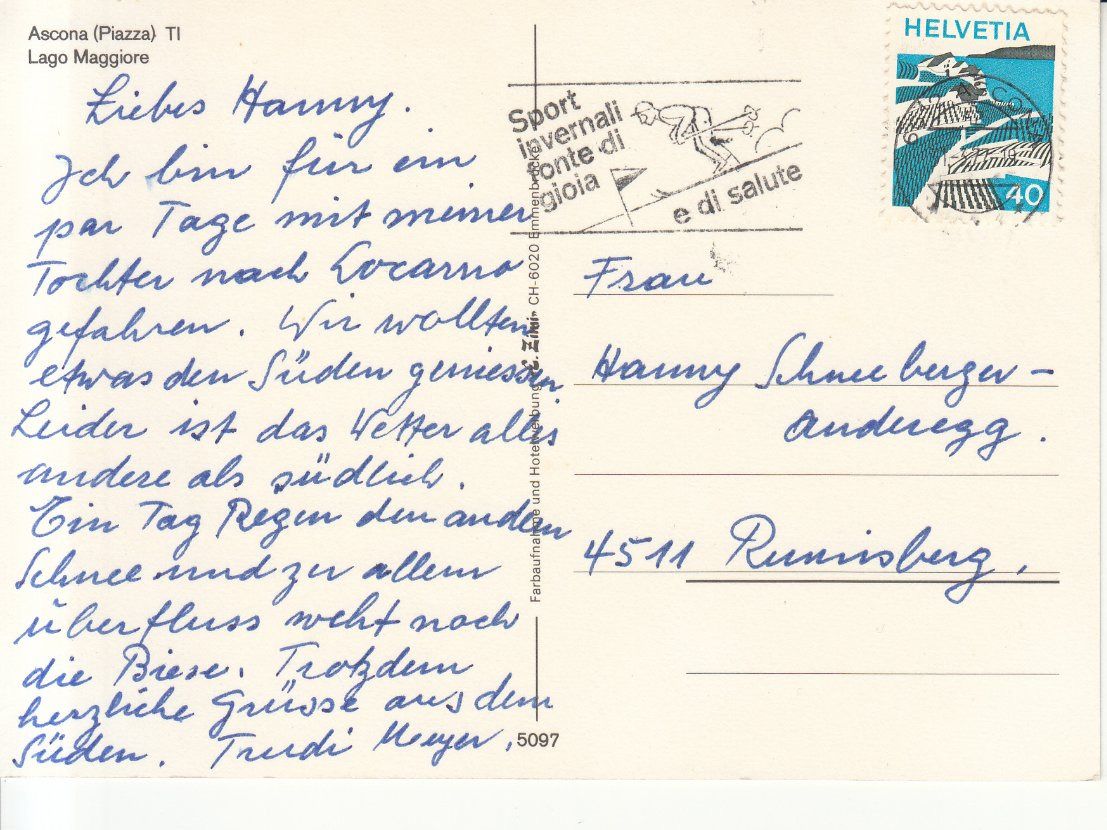 Ascona (Piazza) TI
Lago Maggiore
Liebes Hanny.
Ich bin für ein
par Tage mit meiner
Tochter nach Locarno
gefahren. Wir wollten
etwas den Süden geniessen.
Leider ist das Wetter alles
andere als südlich.
Ein Tag Regen den andern
Schnee und zu allem
überfluss weht noch
die Biese. Trotzdem
herzliche Grüsse aus dem
Süden. Trudi Meyer.
5097
Farbaufnahme und Hotelwerbung CH-6020 Emmenbrücke
Sport
invernali
fonte di
gioia
e di salute
HELVETIA
40
Frau
Hanny Schneeberger-
Anderegg.
4511 Rumisberg.